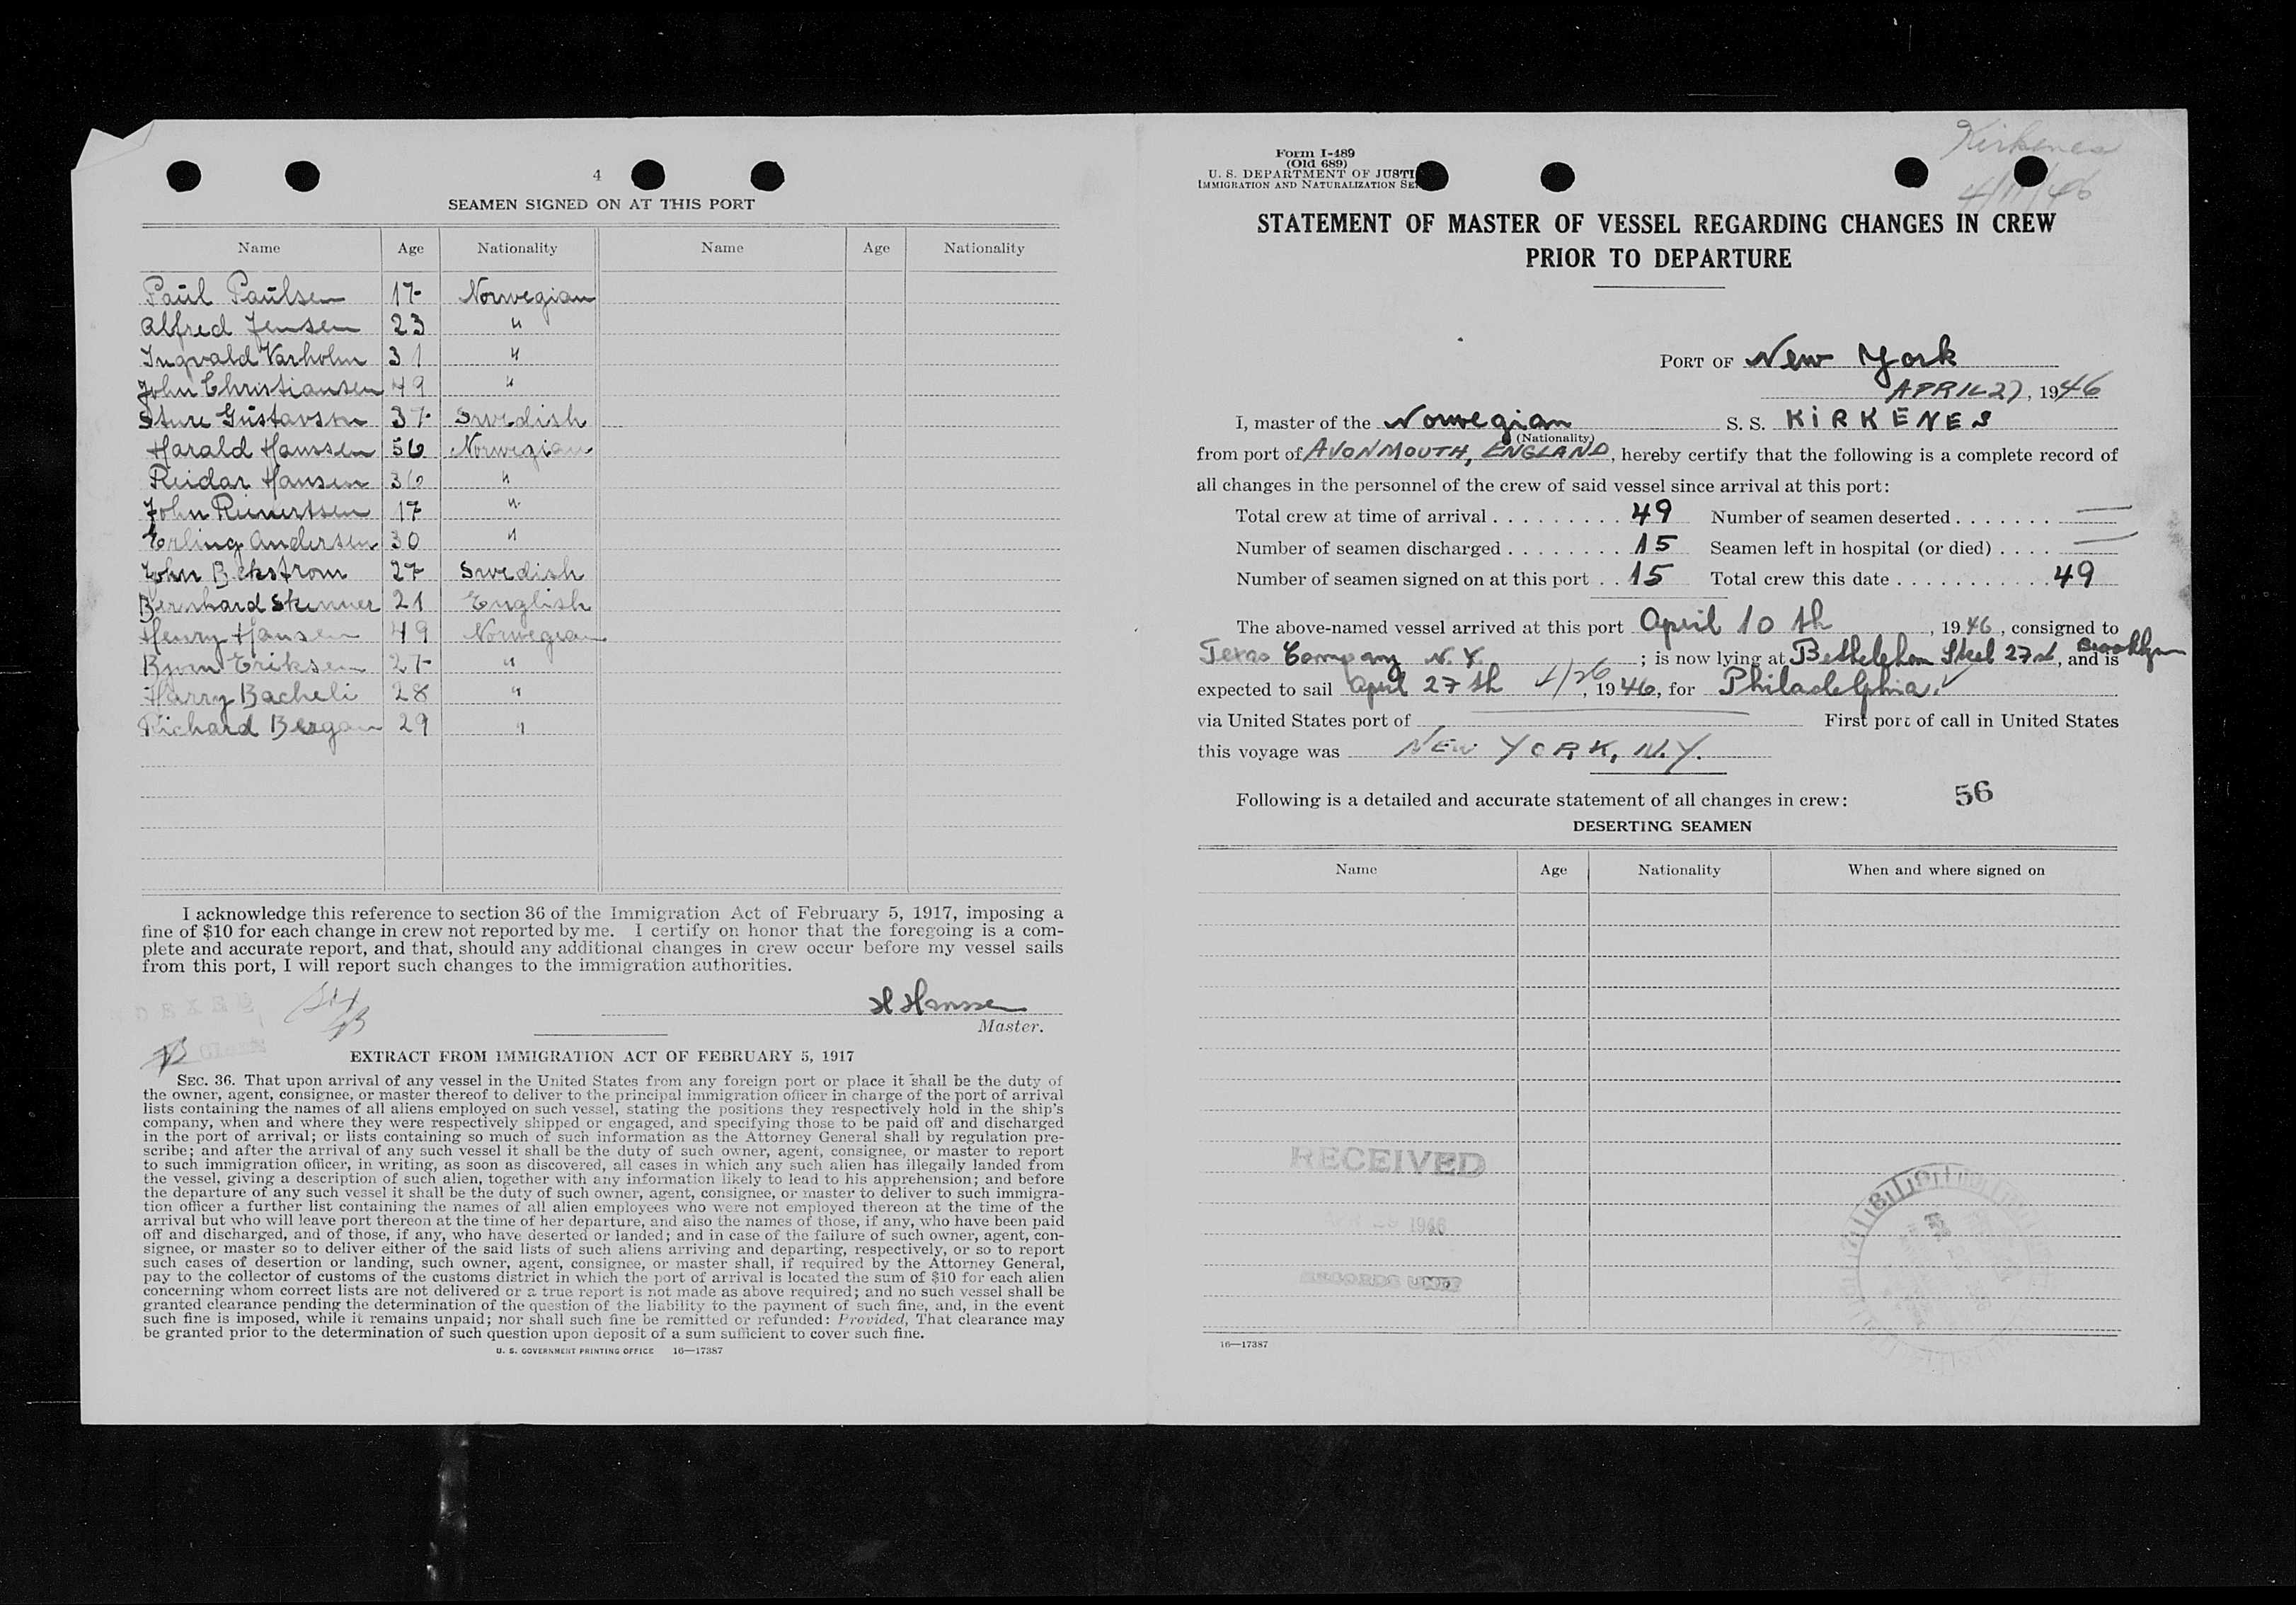 4
SEAMEN SIGNED ON AT THIS PORT
Name Age Nationality Name Age Nationality
Paul Paulsen 17 Norwegian
Alfred Jensen 23 "
Ingvald Varholm 31 "
John Christiansen 49 "
Sture Gustavson 37 Swedish
Harald Hanssen 56 Norwegian
Reidar Hansen 36 "
John Reinertsen 17 "
Erling Andersen 30 "
John Bekstrom 27 Swedish
Bernhard Skinner 21 English
Henry Hansen 49 Norwegian
Bjorn Eriksen 27 "
Harry Bacheli 28 "
Richard Bergan 29 "
I acknowledge this reference to section 36 of the Immigration Act of February 5, 1917, imposing a
fine of $10 for each change in crew not reported by me. I certify on honor that the foregoing is a com-
plete and accurate report, and that, should any additional changes in crew occur before my vessel sails
from this port, I will report such changes to the immigration authorities.
H Hanssen
Master.
EXTRACT FROM IMMIGRATION ACT OF FEBRUARY 5, 1917
SEC. 36. That upon arrival of any vessel in the United States from any foreign port or place it shall be the duty of
the owner, agent, consignee, or master thereof to deliver to the principal immigration officer in charge of the port of arrival
lists containing the names of all aliens employed on such vessel, stating the positions they respectively hold in the ship's
company, when and where they were respectively shipped or engaged, and specifying those to be paid off and discharged
in the port of arrival; or lists containing so much of such information as the Attorney General shall by regulation pre-
scribe; and after the arrival of any such vessel it shall be the duty of such owner, agent, consignee, or master to report
to such immigration officer, in writing, as soon as discovered, all cases in which any such alien has illegally landed from
the vessel, giving a description of such alien, together with any information likely to lead to his apprehension; and before
the departure of any such vessel it shall be the duty of such owner, agent, consignee, or master to deliver to such immigra-
tion officer a further list containing the names of all alien employees who were not employed thereon at the time of the
arrival but who will leave port thereon at the time of her departure, and also the names of those, if any, who have been paid
off and discharged, and of those, if any, who have deserted or landed; and in case of the failure of such owner, agent, con-
signee, or master so to deliver either of the said lists of such aliens arriving and departing, respectively, or so to report
such cases of desertion or landing, such owner, agent, consignee, or master shall, if required by the Attorney General,
pay to the collector of customs of the customs district in which the port of arrival is located the sum of $10 for each alien
concerning whom correct lists are not delivered or a true report is not made as above required; and no such vessel shall be
granted clearance pending the determination of the question of the liability to the payment of such fine, and, in the event
such fine is imposed, while it remains unpaid; nor shall such fine be remitted or refunded: Provided, That clearance may
be granted prior to the determination of such question upon deposit of a sum sufficient to cover such fine.
U. S. GOVERNMENT PRINTING OFFICE 16—17387
Kirkenes
4/11/46
Form I-489
(Old 689)
U. S. DEPARTMENT OF JUSTI
IMMIGRATION AND NATURALIZATION SE
STATEMENT OF MASTER OF VESSEL REGARDING CHANGES IN CREW
PRIOR TO DEPARTURE
PORT OF New York
APRIL 27, 1946
I, master of the Norwegian S. S. KIRKENES
(Nationality)
from port of AVONMOUTH, ENGLAND, hereby certify that the following is a complete record of
all changes in the personnel of the crew of said vessel since arrival at this port:
Total crew at time of arrival . . . . . . . . . 49 Number of seamen deserted . . . . . . . —
Number of seamen discharged . . . . . . . . 15 Seamen left in hospital (or died) . . . . —
Number of seamen signed on at this port . . 15 Total crew this date . . . . . . . . . . . 49
The above-named vessel arrived at this port April 10 th, 1946, consigned to
Texas Company N.Y. ; is now lying at Bethlehem Steel 27st Brooklyn, and is
expected to sail April 27 th 4/26, 1946, for Philadelphia. ✓
via United States port of First port of call in United States
this voyage was NEW YORK, N.Y.
Following is a detailed and accurate statement of all changes in crew: 56
DESERTING SEAMEN
Name Age Nationality When and where signed on
RECEIVED
1946
RECORDS UNIT
16—17387